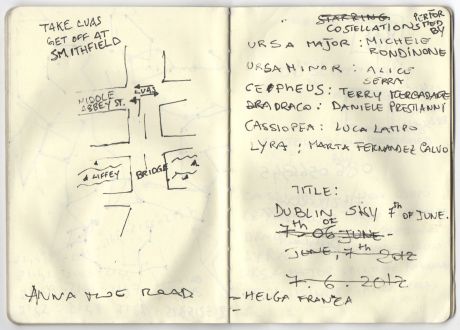 TAKE LUAS
GET OFF AT
SMITHFIELD
LUAS
MIDDLE
ABBEY ST.
LIFFEY
BRIDGE
ANNA
ROAD
STARRING
COSTELLATIONS PERFOR
MED
BY
URSA MAJOR : MICHELE
RONDINONE
URSA MINOR : ALICE
SERRA
CEPHEUS : TERRY
DRACO : DANIELE PRESTIANNI
CASSIOPEA : LUCA LAMPO
LYRA : MARTA FERNANDEZ CALVO
TITLE:
DUBLIN SKY 7th OF JUNE.
7th OF
7.06 JUNE
JUNE, 7th 2012
7.6.2012
- HELGA FRANZA